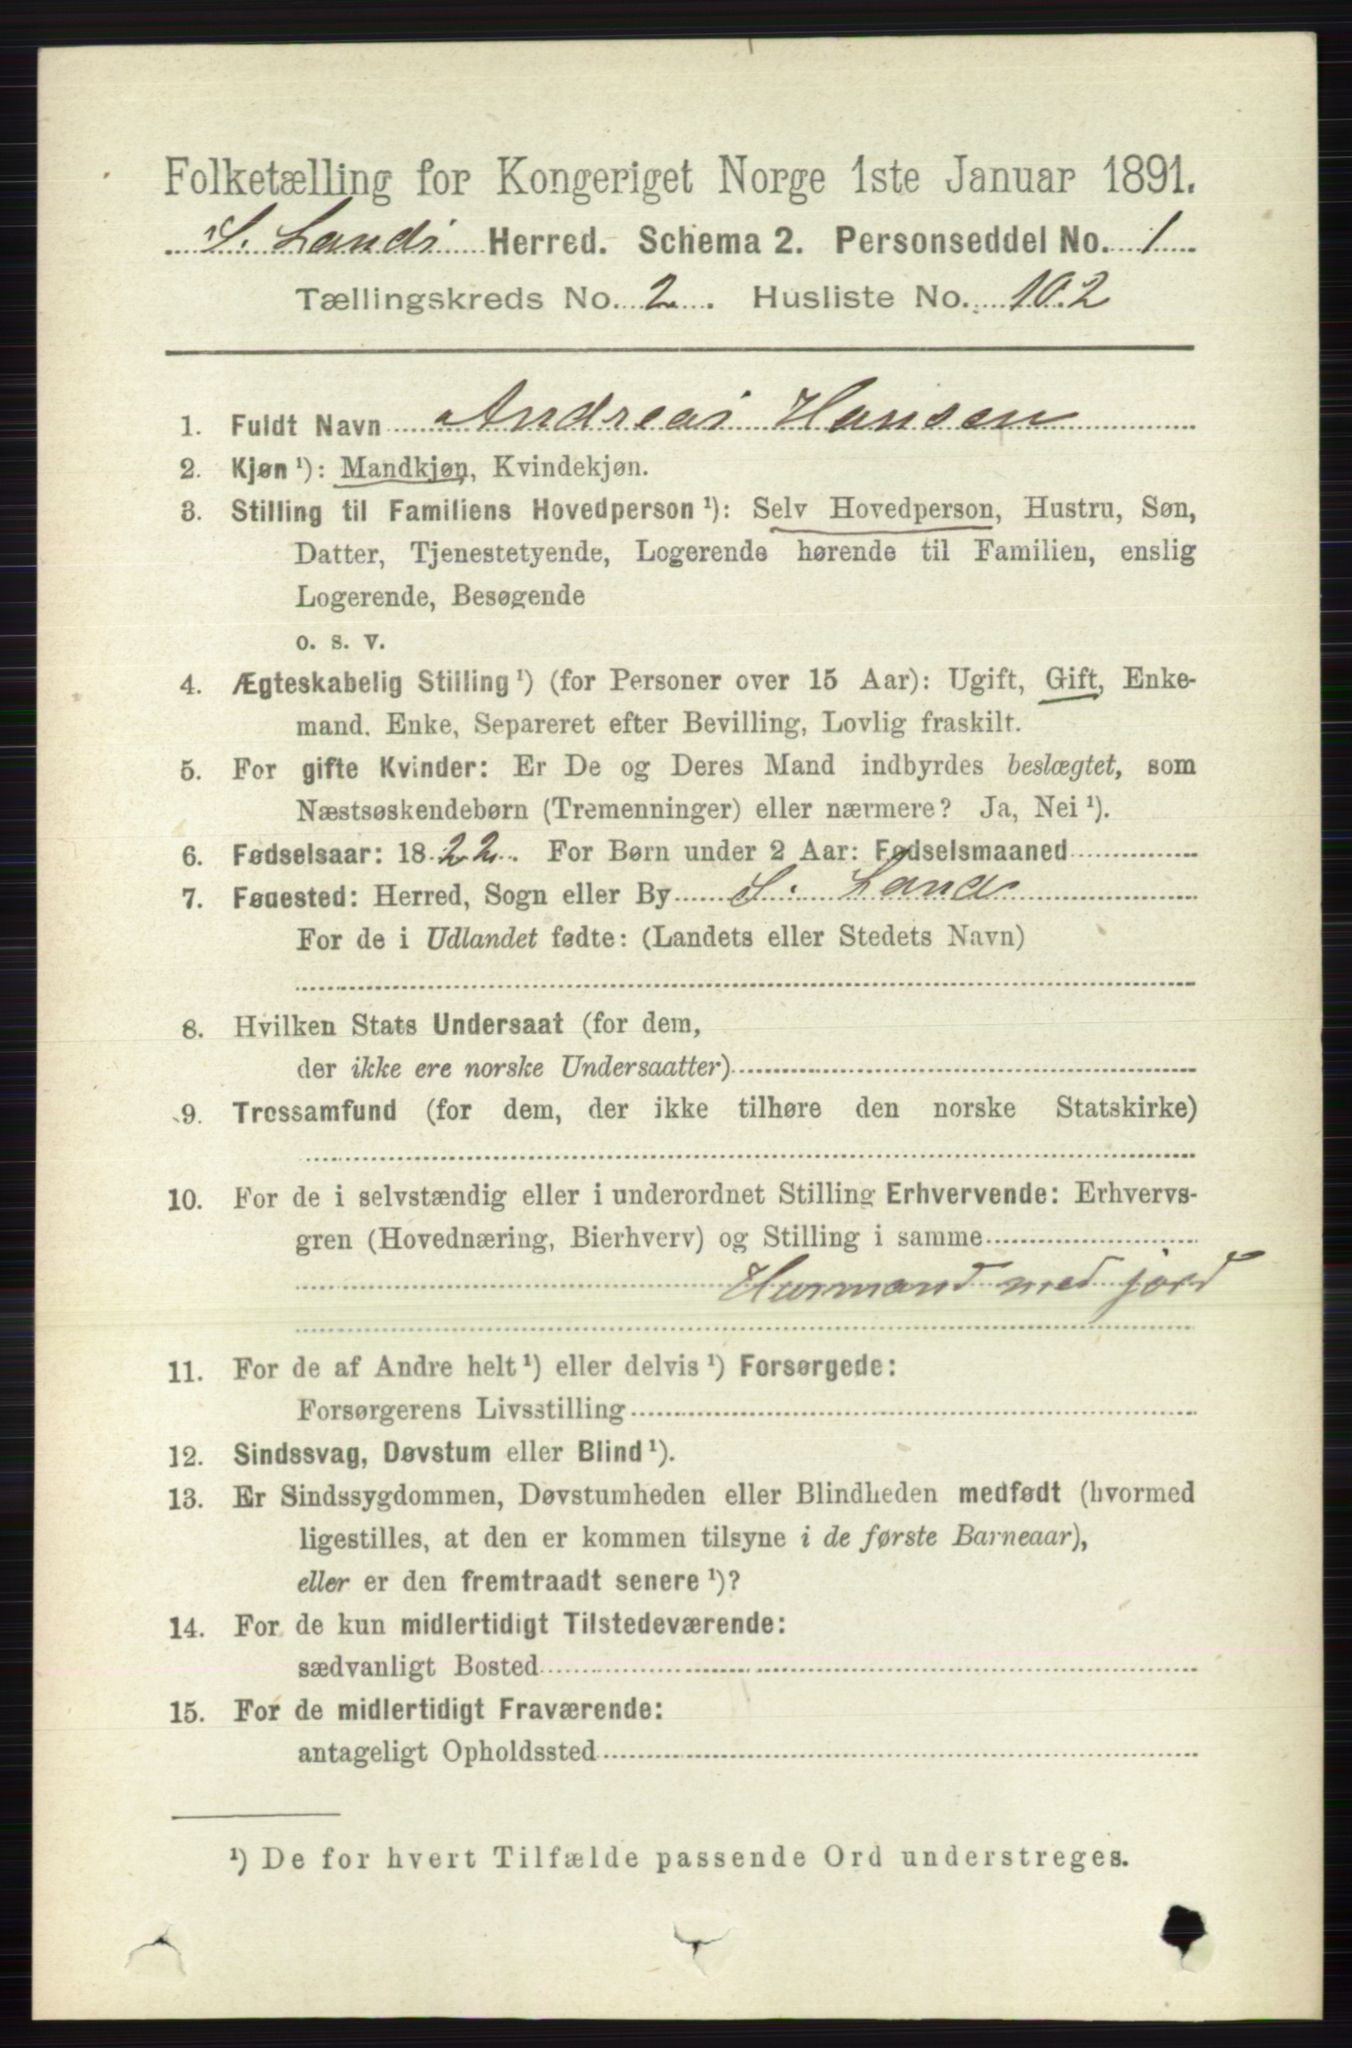 Folketælling for Kongeriget Norge 1ste Januar 1891.
S. Lands Herred. Schema 2. Personseddel No. 1
Tællingskreds No. 2. Husliste No. 102
1. Fuldt Navn Andreas Hansen
2. Kjøn ¹): Mandkjøn, Kvindekjøn.
3. Stilling til Familiens Hovedperson ¹): Selv Hovedperson, Hustru, Søn,
Datter, Tjenestetyende, Logerende hørende til Familien, enslig
Logerende, Besøgende
o. s. v.
4. Ægteskabelig Stilling ¹) (for Personer over 15 Aar): Ugift, Gift, Enke-
mand, Enke, Separeret efter Bevilling, Lovlig fraskilt.
5. For gifte Kvinder: Er De og Deres Mand indbyrdes beslægtet, som
Næstsøskendebørn (Tremenninger) eller nærmere? Ja, Nei ¹).
6. Fødselsaar: 1822. For Børn under 2 Aar: Fødselsmaaned
7. Føuested: Herred, Sogn eller By S. Land
For de i Udlandet fødte: (Landets eller Stedets Navn)
8. Hvilken Stats Undersaat (for dem,
der ikke ere norske Undersaatter)
9. Trossamfund (for dem, der ikke tilhøre den norske Statskirke)
10. For de i selvstændig eller i underordnet Stilling Erhvervende: Erhvervs-
gren (Hovednæring, Bierhverv) og Stilling i samme
Husmand med jord
11. For de af Andre helt ¹) eller delvis ¹) Forsørgede:
Forsørgerens Livsstilling
12. Sindssvag, Døvstum eller Blind ¹).
13. Er Sindssygdommen, Døvstumheden eller Blindheden medfødt (hvormed
ligestilles, at den er kommen tilsyne i de første Barneaar),
eller er den fremtraadt senere ¹)?
14. For de kun midlertidigt Tilstedeværende:
sædvanligt Bosted
15. For de midlertidigt Fraværende:
antageligt Opholdssted
¹) De for hvert Tilfælde passende Ord understreges.